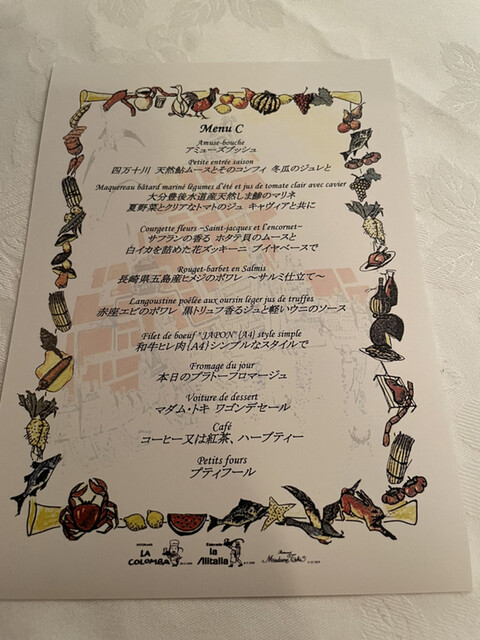 Menu C
Amuse-bouche
アミューズブッシュ
Petite entrée saison
四万十川 天然鮎ムースとそのコンフィ 冬瓜のジュレと
Maquereau bâtard mariné légumes d'été et jus de tomate clair avec cavier
大分豊後水道産天然しま鯵のマリネ
夏野菜とクリアなトマトのジュ キャヴィアと共に
Courgette fleurs ~Saint-jacques et l'encornet~
サフランの香る ホタテ貝のムースと
白イカを詰めた花ズッキーニ ブイヤベースで
Rouget-barbet en Salmis
長崎県五島産ヒメジのポワレ ~サルミ仕立て~
Langoustine poêlée aux oursin léger jus de truffes
赤座エビのポワレ 黒トリュフ香るジュと軽いウニのソース
Filet de boeuf "JAPON" {A4} style simple
和牛ヒレ肉{A4}シンプルなスタイルで
Fromage du jour
本日のプラトーフロマージュ
Voiture de dessert
マダム・トキ ワゴンデセール
Café
コーヒー又は紅茶、ハーブティー
Petits fours
プティフール
LA COLOMBA
la Alitalia
Madame Toki